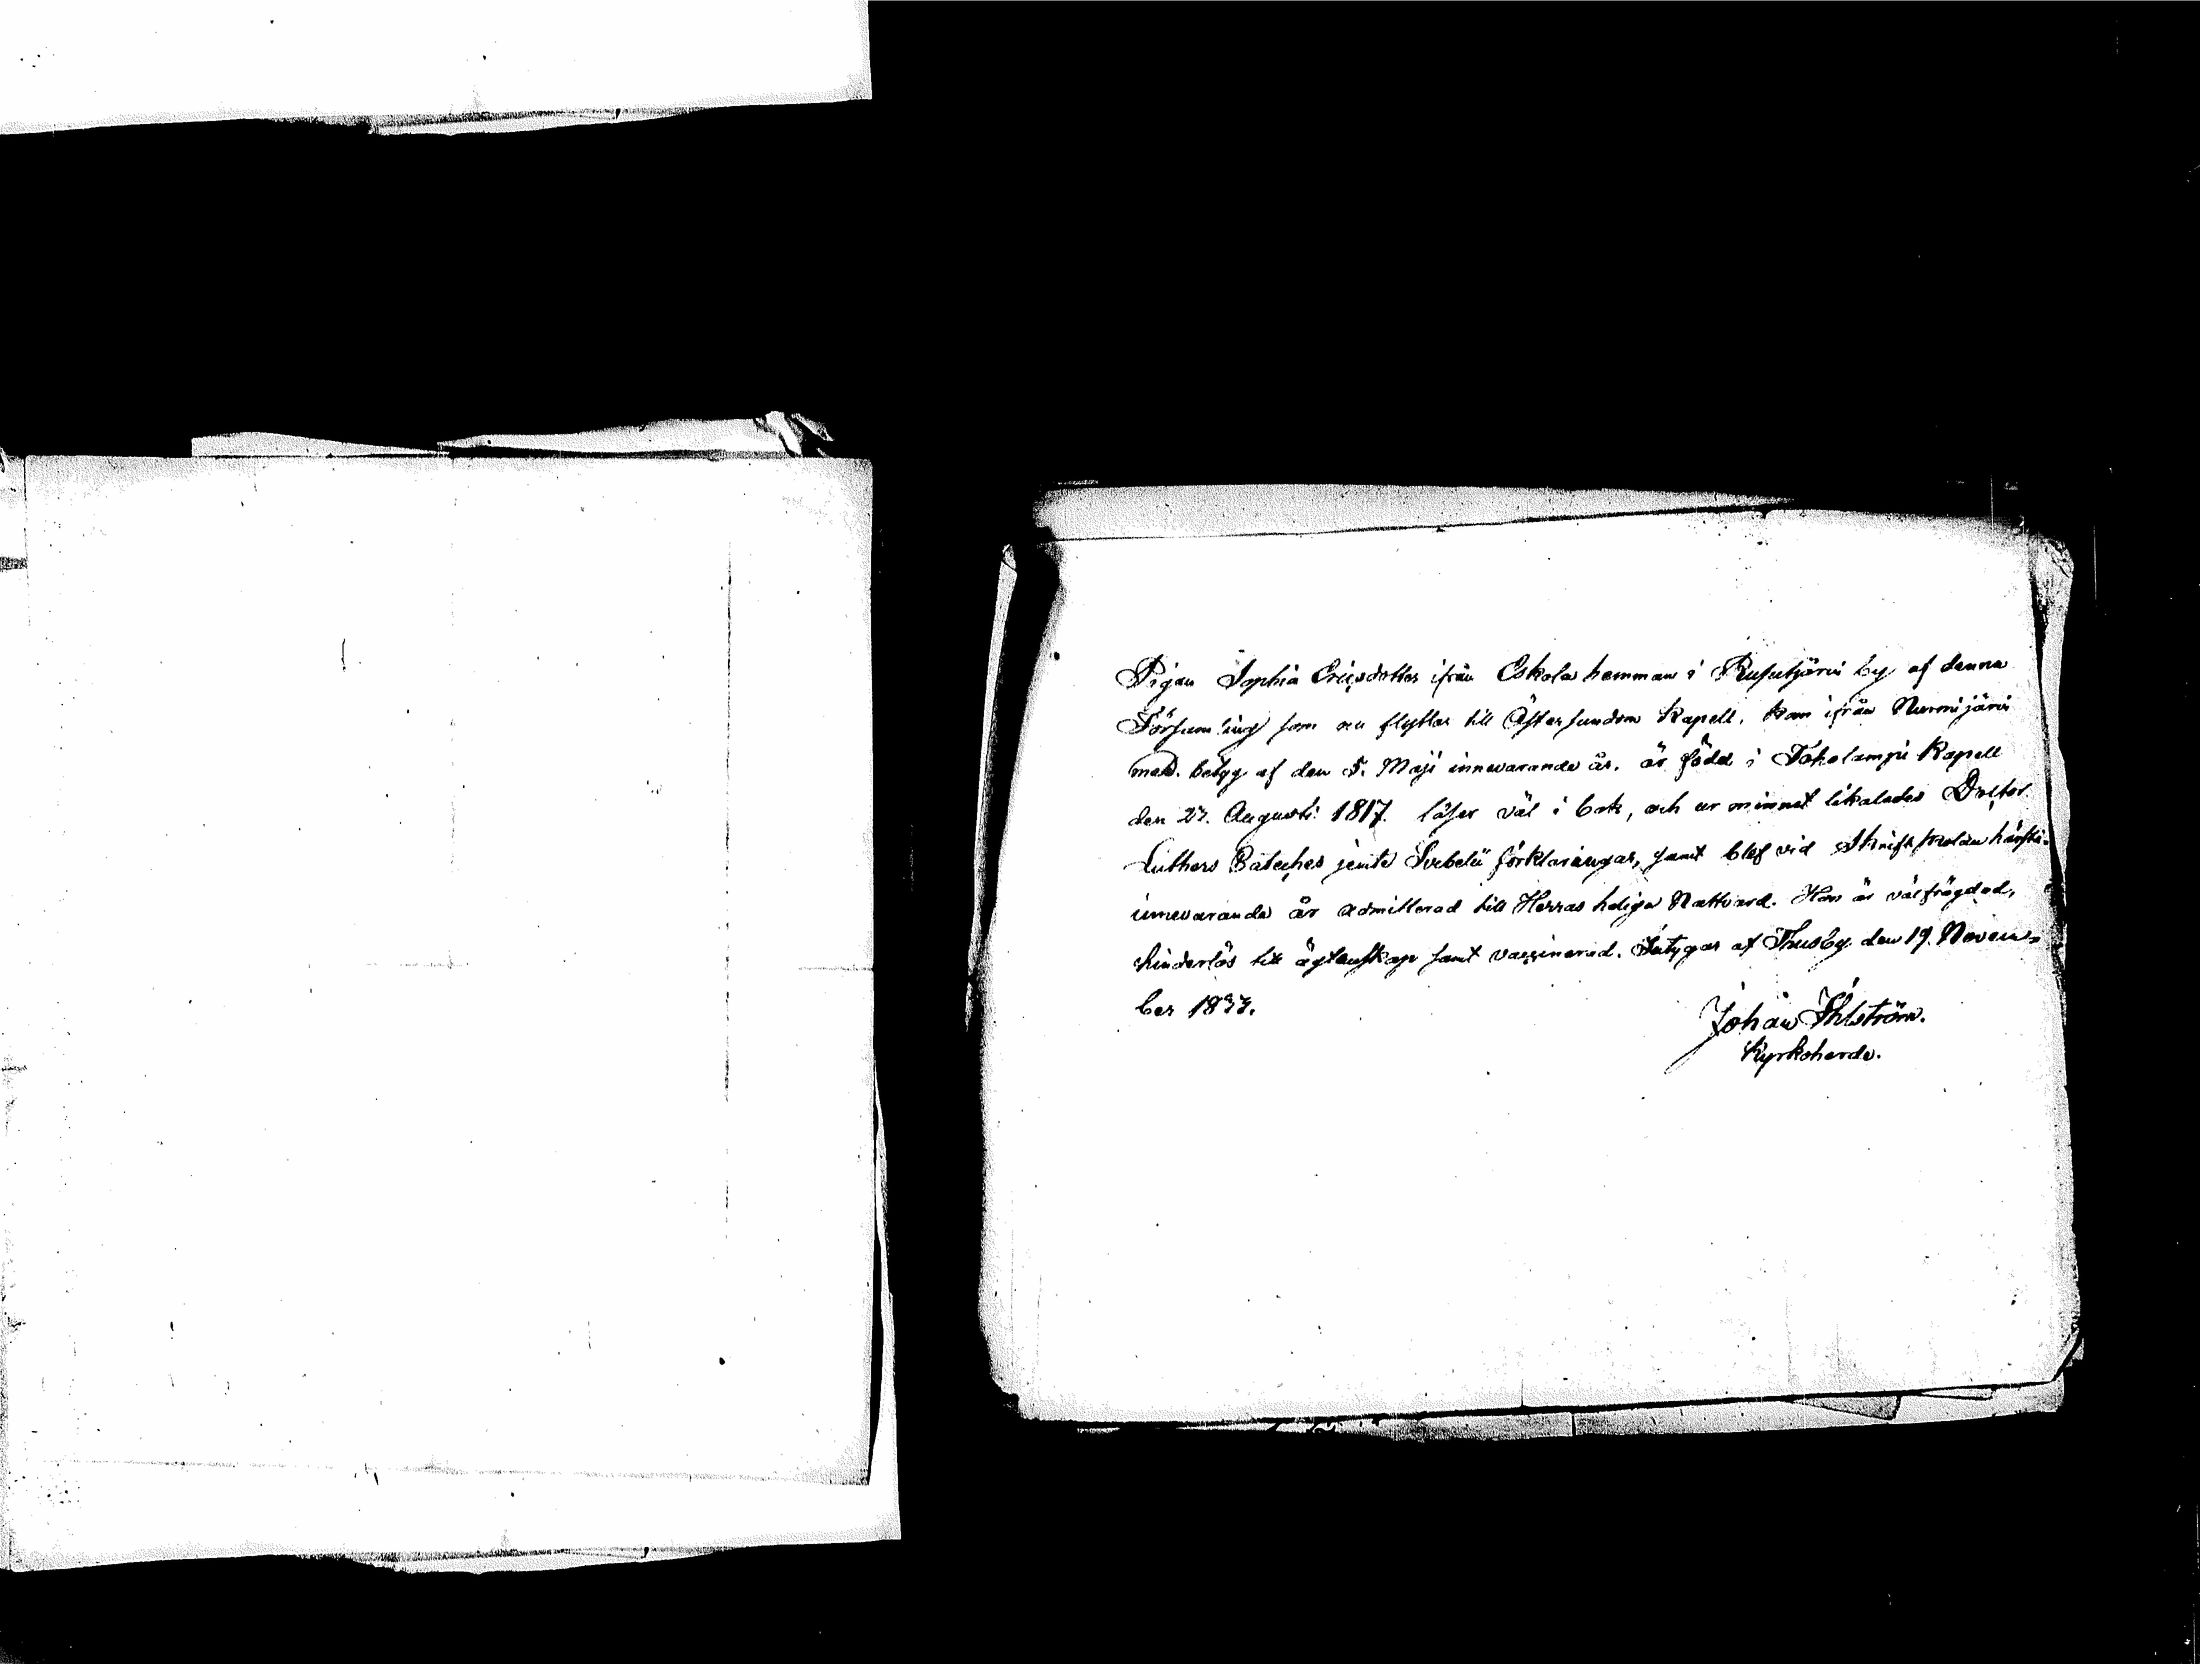 Pigan Sophia Ericsdotter ifrån Eskola hemman i Rusutjärvi by af denna
Församling som nu flyttar till Östersundom Kapell, kom ifrån Nurmijärvi
med betyg af den 5. Maji innevarande år. är född i Toholampi Kapell
den 27. Augusti 1817. läser väl i bok, och ur minnet likaledes Doctor
Luthers Cateches jemte Svebelii förklaringar, samt blef vid Skriftskolan hösten
innevarande år admitterad till Herrans heliga Nattvard. Hon är välfrägdad,
hinderlös till ägtenskap samt vaccinerad. Intygar af Thusby den 19. Novem-
ber 1833.
Johan Ihlström.
Kyrkoherde.